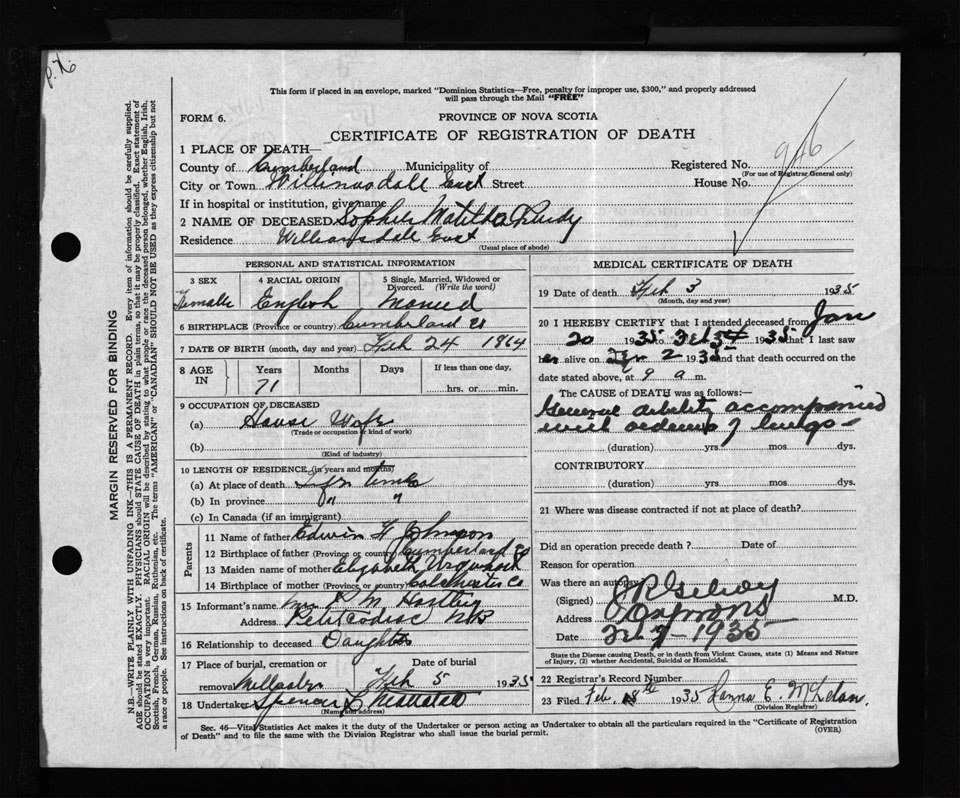 P. 76
This form if placed in an envelope, marked "Dominion Statistics—Free, penalty for improper use, $300," and properly addressed
will pass through the Mail "FREE"
FORM 6.
PROVINCE OF NOVA SCOTIA
CERTIFICATE OF REGISTRATION OF DEATH
1 PLACE OF DEATH—
County of Cumberland Municipality of
Registered No. 946
(For use of Registrar General only)
City or Town Williamsdale East Street
House No.
If in hospital or institution, give name
2 NAME OF DECEASED Sophia Matilda Purdy
Residence Williamsdale East
(Usual place of abode)
PERSONAL AND STATISTICAL INFORMATION
3 SEX
Female
4 RACIAL ORIGIN
English
5 Single, Married, Widowed or
Divorced. (Write the word)
6 BIRTHPLACE (Province or country) Cumberland Co
7 DATE OF BIRTH (month, day and year) Feb 24 1864
8 AGE IN
Years
71
Months
Days
If less than one day,
hrs. or min.
9 OCCUPATION OF DECEASED
(a) House Wife
(Trade or occupation or kind of work)
(b)
(Kind of industry)
10 LENGTH OF RESIDENCE (in years and months)
(a) At place of death
(b) In province " "
(c) In Canada (if an immigrant)
Parents
11 Name of father Edwin Johnson
12 Birthplace of father (Province or country) Cumberland Co
13 Maiden name of mother Elizabeth Urquhart
14 Birthplace of mother (Province, or country) Colchester Co
15 Informant's name Mrs. M Hartley
Address Petitcodiac NB
16 Relationship to deceased Daughter
17 Place of burial, cremation or
removal
Date of burial
Feb 5 1935
18 Undertaker Spencer
(Name and address)
MEDICAL CERTIFICATE OF DEATH
19 Date of death Feb 3 1935
(Month, day and year)
20 I HEREBY CERTIFY that I attended deceased from Jan
20 1935 to Feb 3 1935 that I last saw
er alive on Feb 2 1935 and that death occurred on the
date stated above, at 9 a m.
The CAUSE of DEATH was as follows:—
General debility accompanied
with oedema of lungs
(duration) yrs mos dys.
CONTRIBUTORY
(duration) yrs mos dys.
21 Where was disease contracted if not at place of death?
Did an operation precede death? Date of
Reason for operation
Was there an autopsy
(Signed) M.D.
Address
Date Feb 7 - 1935
State the Disease causing Death, or in death from Violent Causes, state (1) Means and Nature
of Injury, (2) whether Accidental, Suicidal or Homicidal.
22 Registrar's Record Number
23 Filed Feb. 8th 1935 E. McLelan.
(Division Registrar)
Sec. 46—Vital Statistics Act makes it the duty of the Undertaker or person acting as Undertaker to obtain all the particulars required in the "Certificate of Registration
of Death" and to file the same with the Division Registrar who shall issue the burial permit.
(OVER)
MARGIN RESERVED FOR BINDING
N.B.—WRITE PLAINLY WITH UNFADING INK—THIS IS A PERMANENT RECORD. Every item of information should be carefully supplied.
AGE should be stated EXACTLY. PHYSICIANS should STATE CAUSE OF DEATH in plain terms, so that it may be properly classified. Exact statement of
OCCUPATION is very important. RACIAL ORIGIN will be described by stating to what people or race the deceased person belonged, whether English, Irish,
Scottish, French, German, Russian, Ruthenian, etc. The terms "AMERICAN" or "CANADIAN" SHOULD NOT BE USED as they express citizenship but not
a race or people. See instructions on back of certificate.